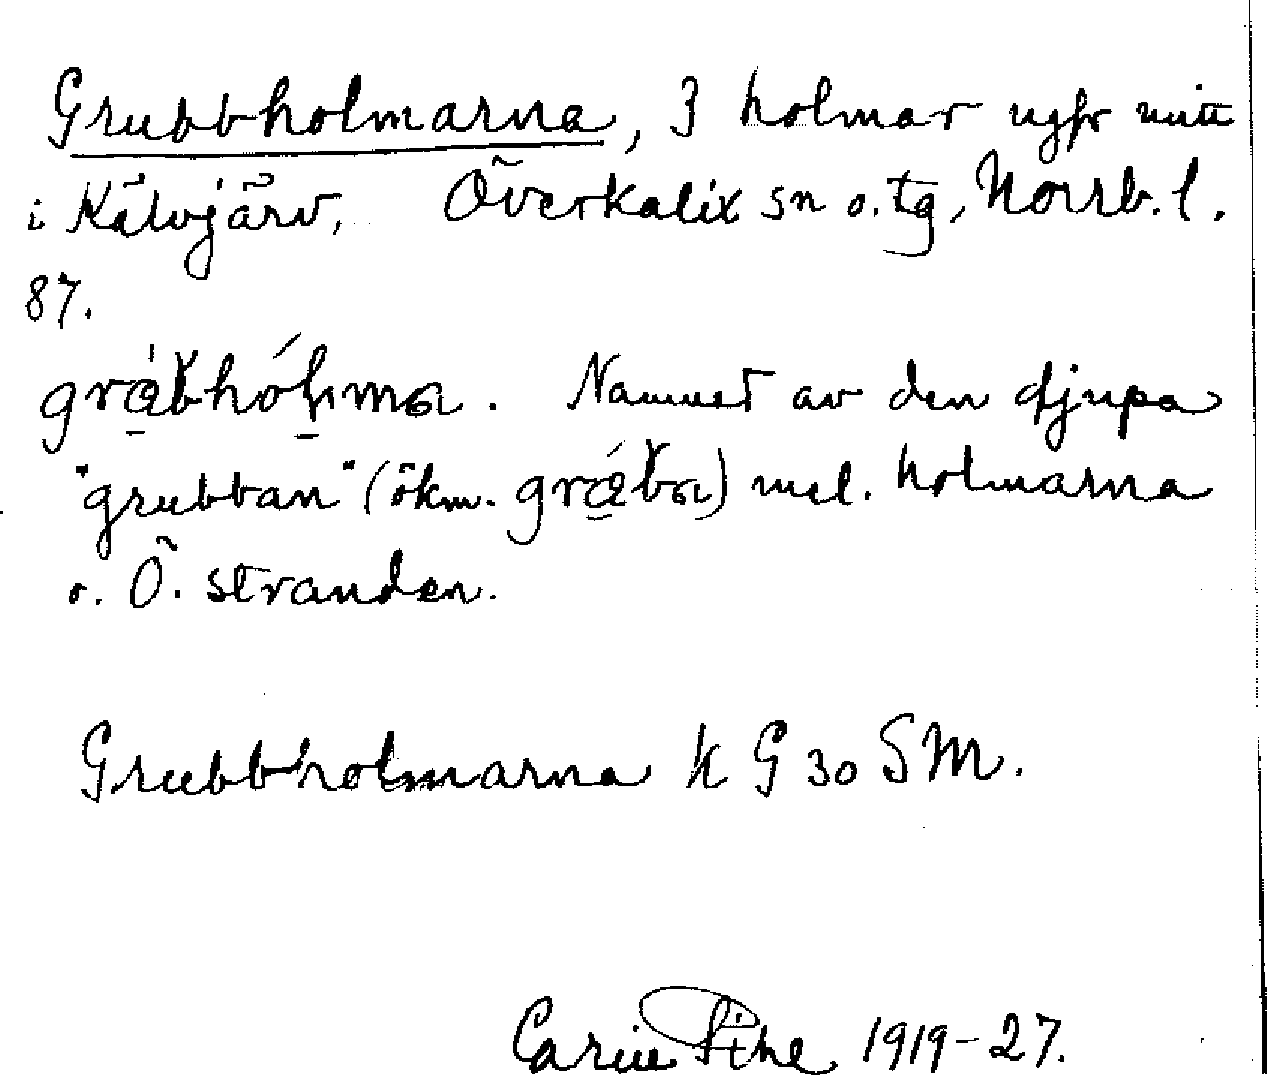 Grubbholmarna, 3 holmar ugfr mitt
i Kälvjärv, Överkalix sn o. tg, Norrb. l.
87.
Namnet av den djupa
"grubban" (ökn. ) mel. holmarna
o. Ö. stranden.
Grubbholmarna k G 30 SM.
Carin Pihl 1919-27.